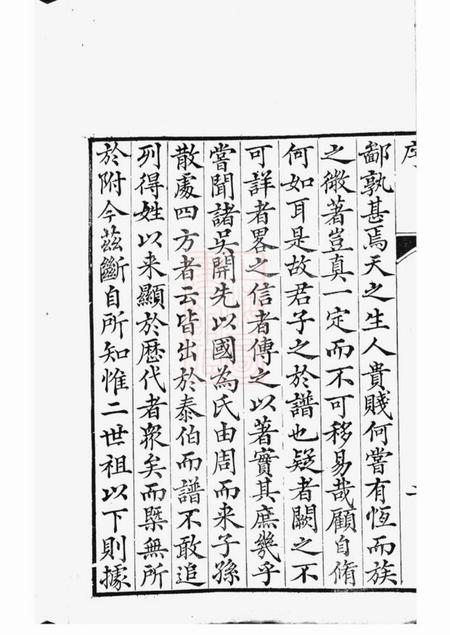 序
鄙孰甚焉天之生人貴賤何嘗有恆而族
之微著豈真一定而不可移易哉顧自脩
何如耳是故君子之於譜也疑者闕之不
可詳者畧之信者傳之以著實其庶幾乎
嘗聞諸吳開先以國為氏由周而来子孫
散處四方者云皆出於泰伯而譜不敢追
列得姓以来顯於歴代者衆矣而槩無所
於附今茲斷自所知惟二世祖以下則據